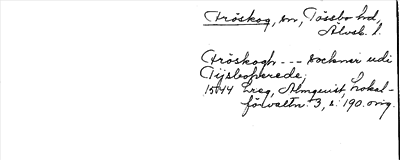 Fröskog, sn, Tössbo hd,
Älvsb. l.
Fröskogh --- Sochner udi
Tijsboherede,
1544 Lreg, Almquist, Lokal-
förvaltn. 3, s. 190. orig.